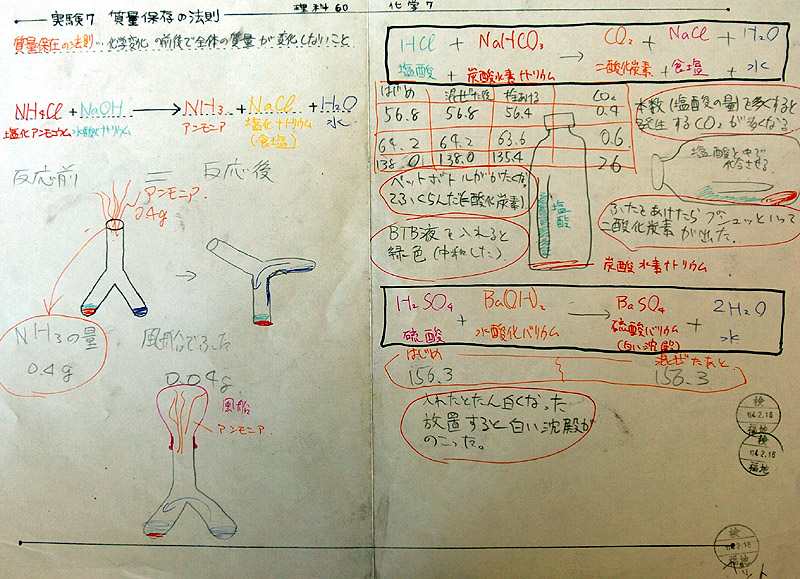 理科60 化学7
実験7 質量保存の法則
質量保存の法則…化学変化の前後で全体の質量が変化しないこと
NH4Cl + NaOH → NH3 + NaCl + H2O
塩化アンモニウム 水酸化ナトリウム アンモニア 塩化ナトリウム 水
(食塩)
反応前 = 反応後
アンモニア
0.4g
NH3の量
0.4g
風船でふた
0.04g
風船
アンモニア
HCl + NaHCO3 → CO2 + NaCl + H2O
塩酸 + 炭酸水素ナトリウム 二酸化炭素 + 食塩 + 水
はじめ 混ぜた後 栓あける CO2
56.8 56.8 56.4 0.4
64.2 64.2 63.6 0.6
138.0 138.0 135.4 2.6
本数(塩酸の量)を多くすると
発生するCO2が多くなる
塩酸と中で
化合させる
ペットボトルがかたくな
ふくらんだ(二酸化炭素)
塩酸
ふたをあけたらプシュッといって
二酸化炭素が出た。
BTB液を入れると
緑色(中和した)
炭酸水素ナトリウム
H2SO4 + Ba(OH)2 → BaSO4 + 2H2O
硫酸 水酸化バリウム 硫酸バリウム 水
(白い沈殿)
はじめ 混ぜたあと
156.3 156.3
入れたとたん白くなった
放置すると白い沈殿が
のこった。
検
福地
検
福地
検
福地